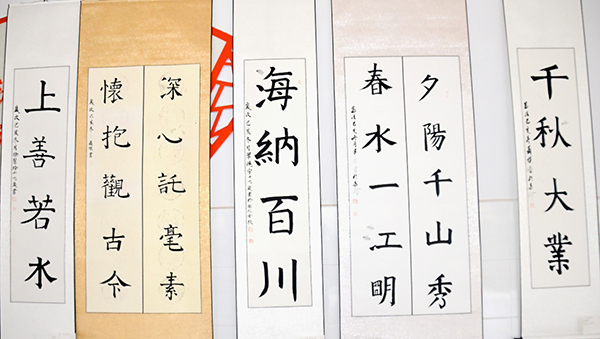 上善若水
深心託毫素
懷抱觀古今
歲次己亥冬
海納百川
夕陽千山秀
春水一江明
千秋大業